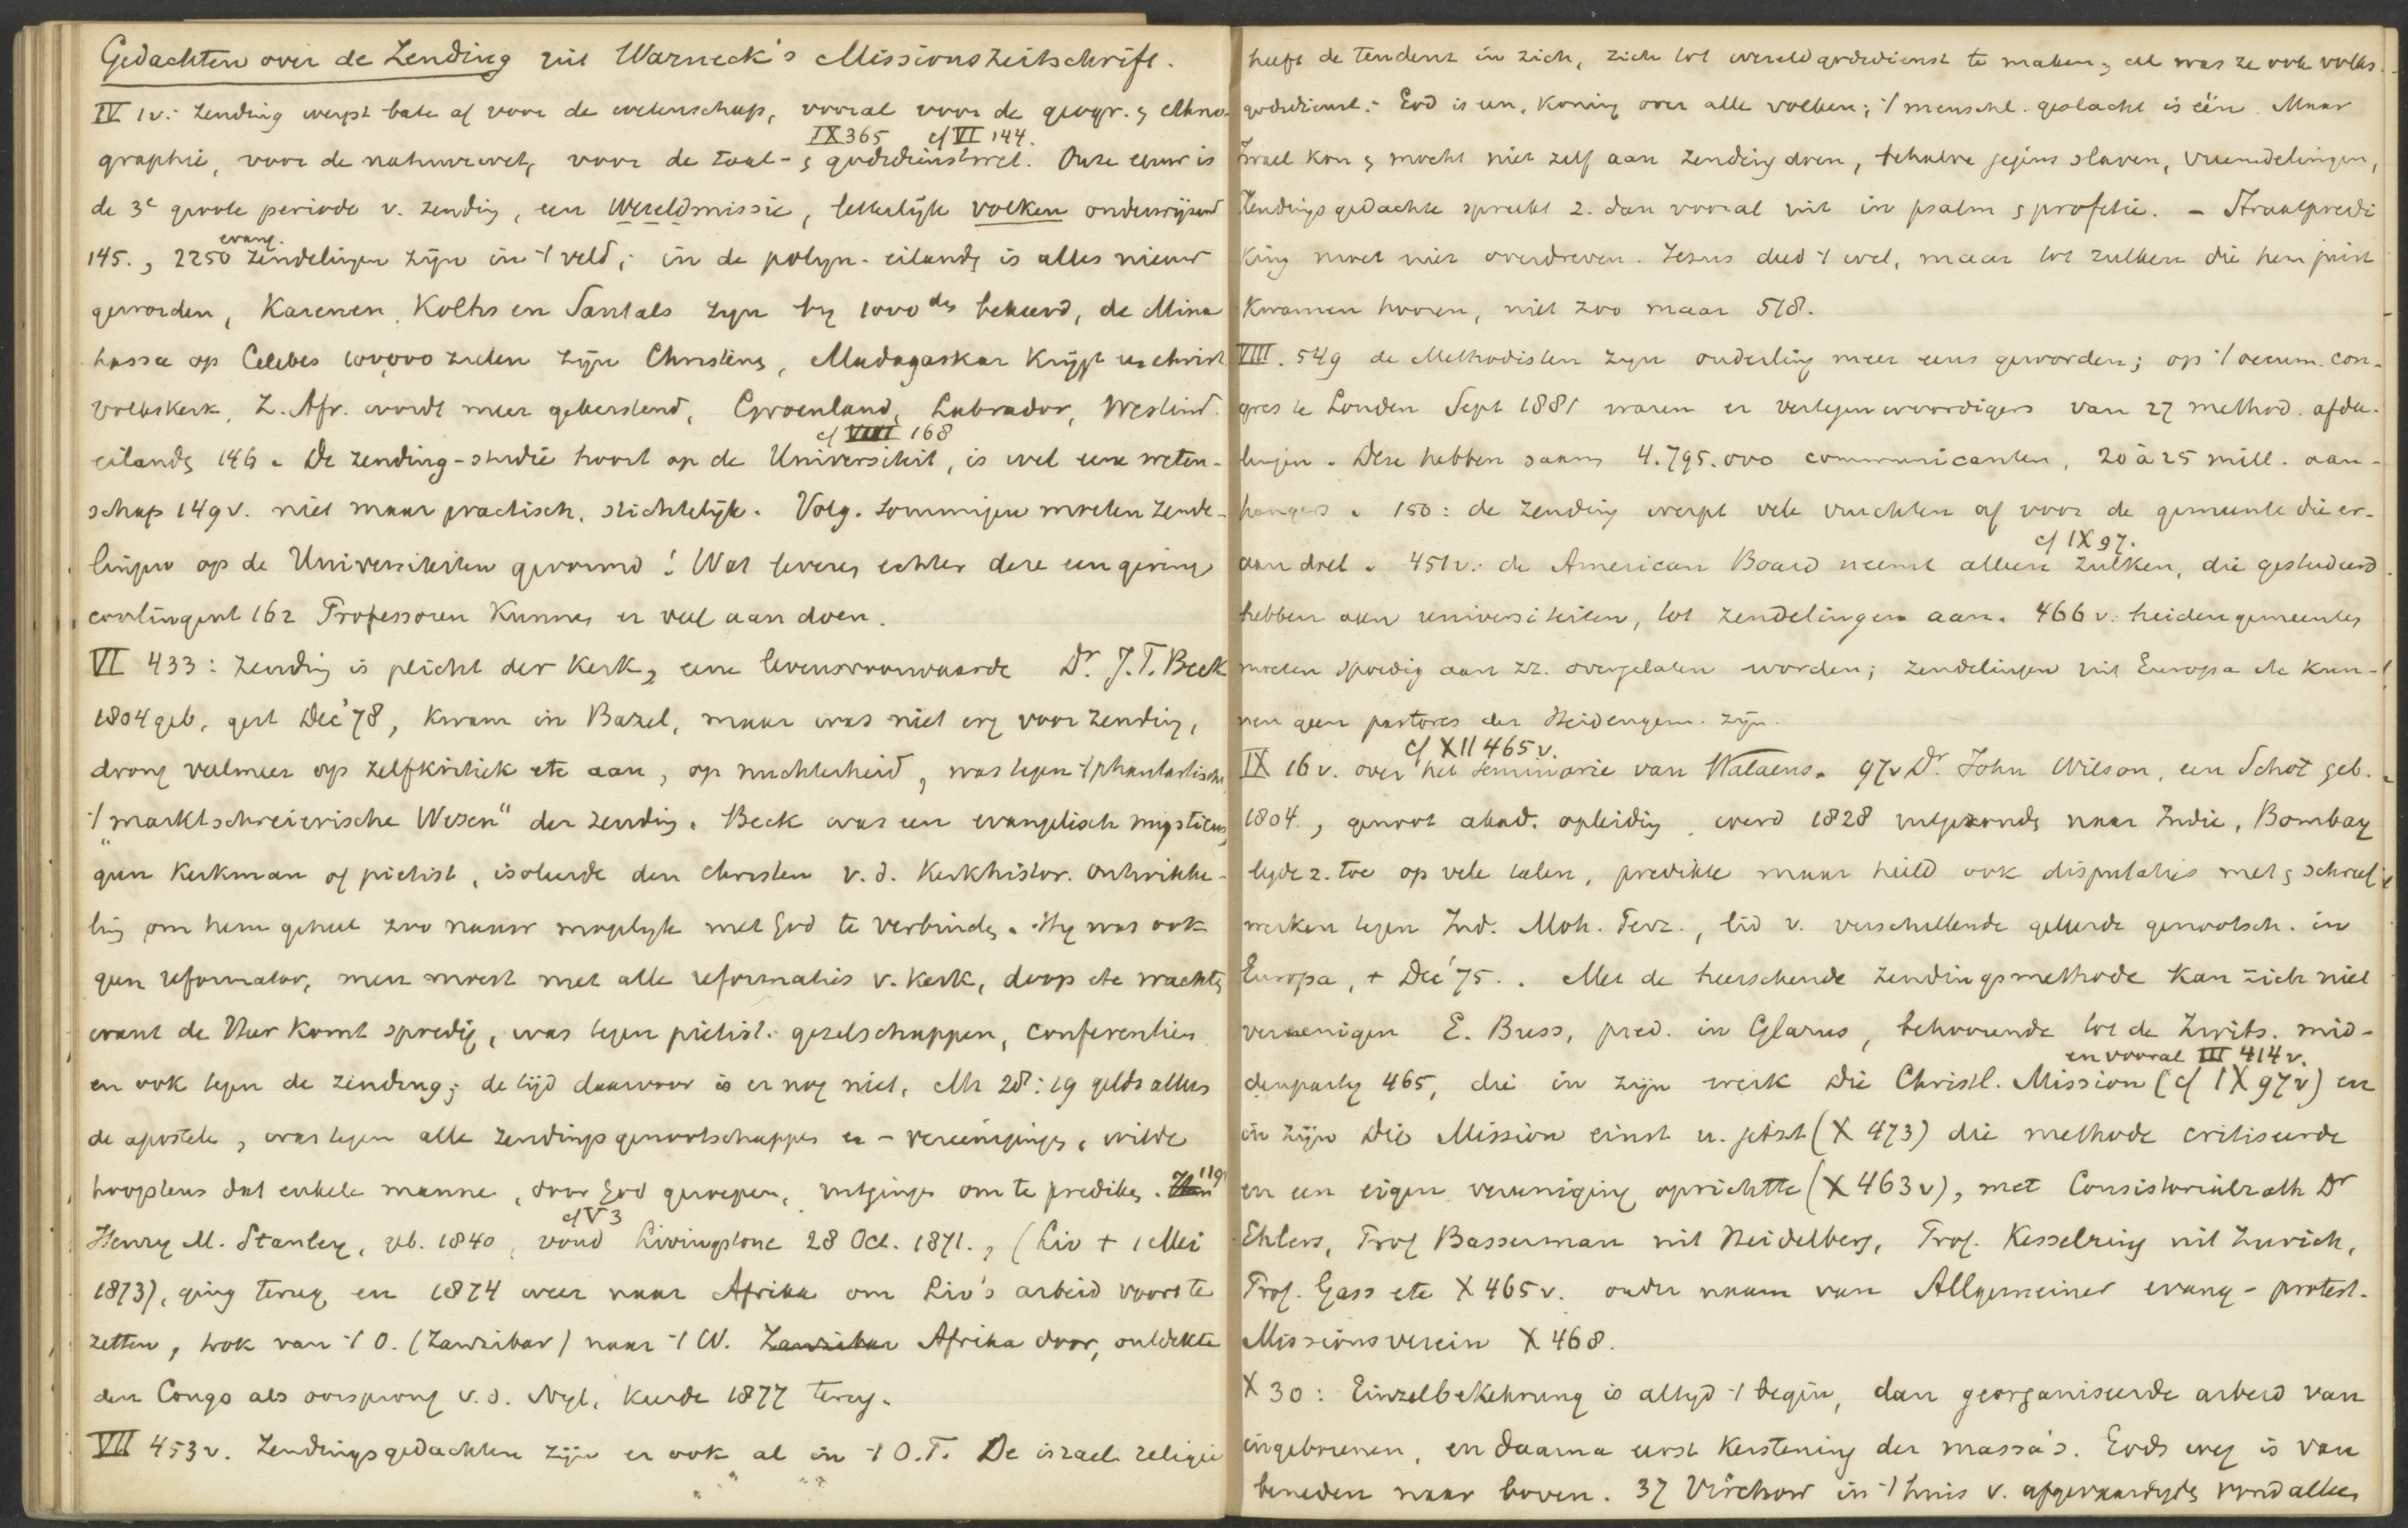 Gedachten over de Zending uit Warneck's Missionszeitschrift.
IV 1v: Zending werpt bate af voor de wetenschap, vooral voor de geogr. & ethno-
IX 365 cf VI 144.
graphie, voor de natuurwet, voor de taal- & godsdienstwet. Onze eeuw is
de 3e groote periode v. zending, een Wereldmissie, letterlijk volken onderwijzend
evang.
145., 2250 zendelingen zijn in 't veld; in de polyn. eilandn is alles nieuw
geworden, Karenen, Kolhs en Santals zijn bij 1000den bekeerd, de Mina
hassa op Celebes 100,000 zielen zijn Christenn, Madagaskar krijgt een christ
volkskerk, Z. Afr. wordt meer gekerstend, Groenland, Labrador, Westind.
cf VIII 168
eilandn 146. De zending-studie hoort op de Universiteit, is wel eene weten-
schap 149v. niet maar practisch, stichtelijk. Volg. sommigen moeten zende-
lingen op de Universiteiten gevormd! Wat leveren echter deze een gering
contingent 162 Professoren kunnen er veel aan doen.
VI 433: Zending is plicht der kerk, eene levensvoorwaarde Dr J.T. Beck
1804 geb, gest Dec '78, kwam in Bazel, maar was niet erg voor zending,
drong veelmeer op zelfkritiek etc aan, op nuchterheid, was tegen 't phantastische
't "marktschreierische Wesen" der zending. Beck was een evangelisch mysticus,
geen kerkman of pietist, isoleerde den christen v.d. kerkhistor. ontwikke-
ling om hem geheel zoo nauw mogelijk met God te verbinden. Hij was ook
geen reformator, men moest met alle reformaties v. kerk, doop etc wachten
want de Heer komt spoedig, was tegen pietist. gezelschappen, conferentien
en ook tegen de zending; de tijd daarvoor is er nog niet, Mt 28:19 geldt alleen
de apostelen, was tegen alle zendingsgenootschappen en -vereenigingen, wilde
hoogstens dat enkele mannen, door God geroepen, uitgingen om te prediken. 119
cf V 3
Henry M. Stanley, geb. 1840, vond Livingstone 28 Oct. 1871., (Liv + 1 Mei
1873), ging terug en 1874 weer naar Afrika om Liv's arbeid voort te
zetten, trok van 't O. (Zanzibar) naar 't W. Zanzibar Afrika door, ontdekte
den Congo als oorsprong v.d. Nijl, keerde 1877 terug.
VII 453v. Zendingsgedachten zijn er ook al in 't O.T. De israel. religie
heeft de tendenz in zich, zich tot wereldgodsdienst te maken, al was ze ook volks-
godsdienst: God is een, koning over alle volken; 't menschl. geslacht is één. Maar
Israel kon & mocht niet zelf aan zending doen, behalve jegens slaven, vreemdelingen,
Zendingsgedachte spreekt z. dan vooral uit in psalm & profetie. - Straatpredi
king moet niet overdreven. Jezus deed 't wel, maar tot zulken die hem juist
kwamen hooren, niet zoo maar 518.
VIII. 549 de Methodisten zijn onderling meer eens geworden; op 't oecum. con-
gres te Londen Sept 1881 waren er vertegenwoordigers van 27 method. afdee-
lingen. Deze hebben saam 4.795.000 communicanten, 20 à 25 mill. aan-
hangers. 150: de zending werpt vele vruchten af voor de gemeente die er-
cf IX 97.
aan doet. 451v: de American Board neemt alleen zulken, die gestudeerd
hebben aan universiteiten, tot zendelingen aan. 466v: heidengemeenten
moeten spoedig aan zz. overgelaten worden; zendelingen uit Europa etc kun-
nen geen pastores der Heidengem. zijn.
cf XII 465v.
IX 16v. over het seminarie van Walaeus. 97v Dr. John Wilson, een Schot geb.
1804., genoot akad. opleiding, werd 1828 uitgezonden naar Indie, Bombay
legde z. toe op vele talen, predikte maar hield ook disputaties met & schreef
werken tegen Ind. Moh. Perz., lid v. verschillende geleerde genootsch. in
Europa, + Dec '75. . Met de heerschende zendingsmethode kan zich niet
vereenigen E. Buss, pred. in Glarus, behoorende tot de Zwits. mid-
en vooral III 414v.
denpartij 465, die in zijn werk Die Christl. Mission (cf IX 97v) en
in zijn Die Mission einst u. jetzt (X 473) die methode critiseerde
en een eigen vereeniging oprichtte (X 463v), met Consistorialrath Dr
Ehlers, Prof Basserman uit Heidelberg, Prof. Kesselring uit Zurich,
Prof. Gass etc X 465v. onder naam van Allgemeiner evang - protest.
Missionsverein X 468.
X 30: Einzelbekehrung is altijd 't begin, dan georganiseerde arbeid van
ingeborenen, en daarna eerst kerstening der massa's. Gods weg is van
beneden naar boven. 37 Virchow in 't huis v. afgevaardigden vond alleen